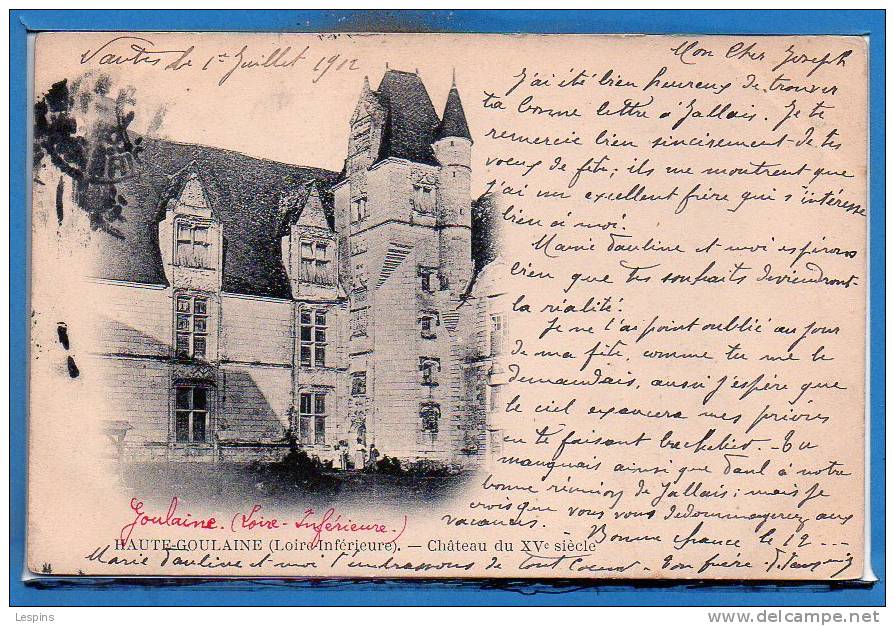 Nantes le 1er Juillet 1912
Mon Cher Joseph
J'ai été bien heureux de trouver
ta bonne lettre à Jallais. Je te
remercie bien sincèrement de tes
voeux de fête; ils me montrent que
j'ai un excellent frère qui s'intéresse
bien à moi.
Marie Pauline et moi espérons
bien que tes souhaits deviendront
la réalité.
Je ne t'ai point oublié au jour
de ma fête, comme tu me le
demandais, aussi j'espère que
le ciel exaucera mes prières
en te faisant bachelier. Tu
manquais ainsi que Paul à notre
bonne réunion de Jallais; mais je
crois que vous vous dédommagerez aux
vacances. Bonne chance le 12 ---
Marie Pauline et moi t'embrassons de tout coeur - Ton frère
Goulaine. (Loire-Inférieure.)
HAUTE-GOULAINE (Loire-Inférieure). — Château du XVe siècle
Lespins
http://www.delcampe.net